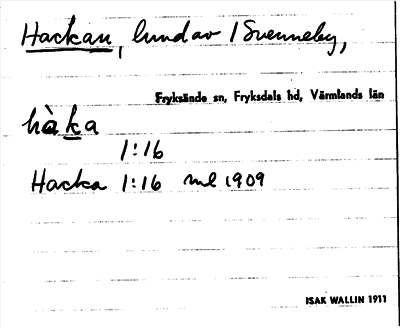 Hackan, lundav i Svenneby,
Fryksände sn, Fryksdals hd, Värmlands län
hàka
1:16
Hacka 1:16 ml 1909
ISAK WALLIN 1911